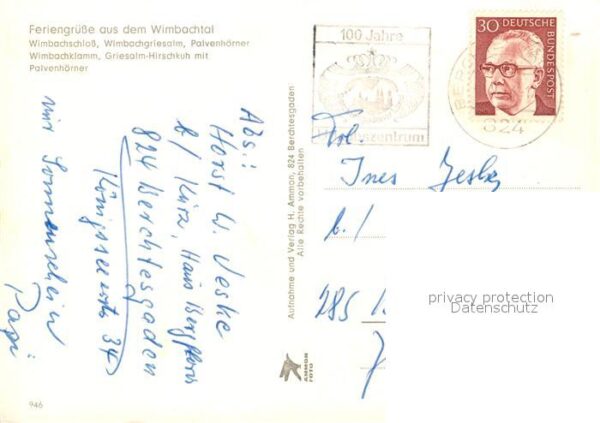 Feriengrüße aus dem Wimbachtal
Wimbachschloß, Wimbachgriesalm, Palvenhörner
Wimbachklamm, Griesalm-Hirschkuh mit
Palvenhörner
Abs.:
Horst W. Jeske
b/ Kurz, Haus Bergflora
824 Berchtesgaden
Königsseerstr. 34
nur Sonnenschein
Papi
946
Aufnahme und Verlag H. Ammon, 824 Berchtesgaden
Alle Rechte vorbehalten
AMMON
FOTO
100 Jahre
30 DEUTSCHE
BUNDESPOST
824
Ines Jeske
b./
285
privacy protection
Datenschutz